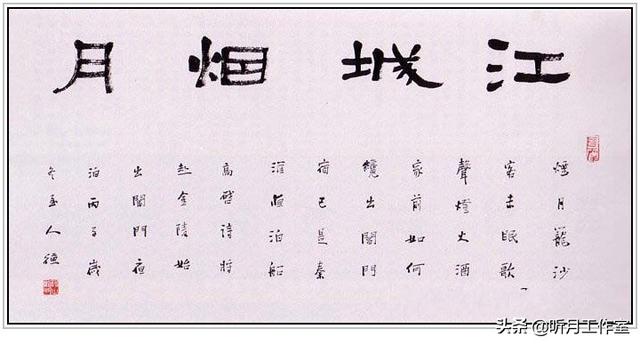 江城烟月
煙月籠沙
客未眠歌
聲燈火酒
家前如何
纔出閶門
宿已是秦
淮泊船
高啓詩將
赴金陵始
出閶門夜
泊丙子歲
冬人
头条@昕月工作室